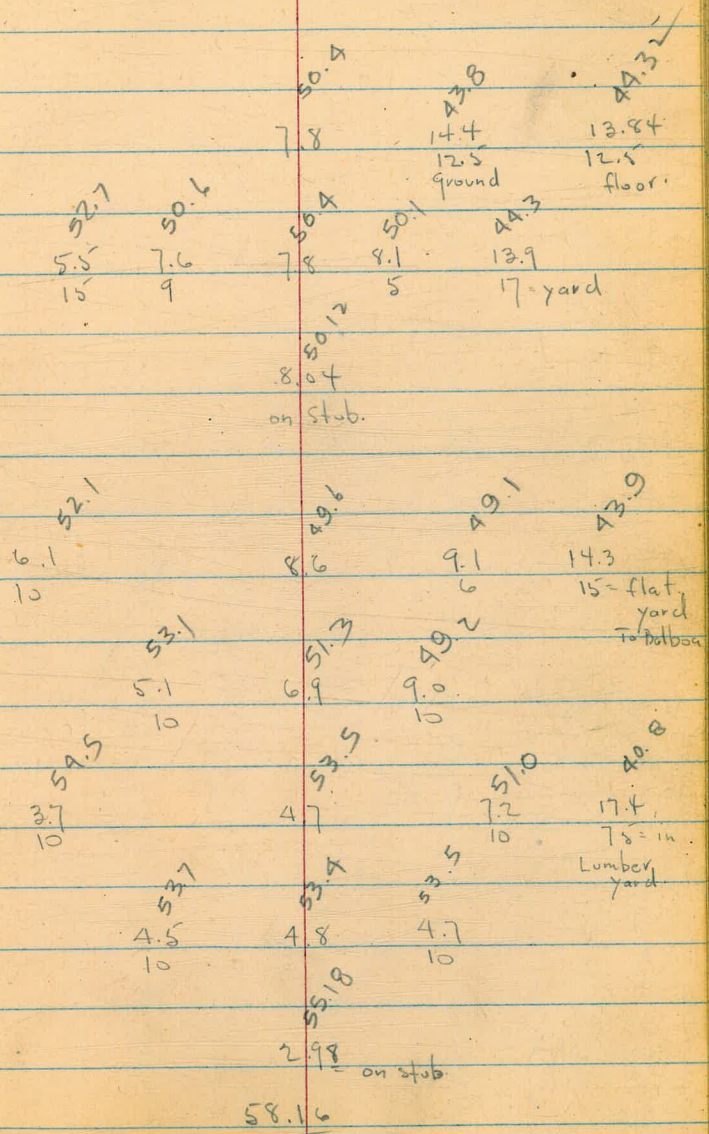 50.4 43.8 44.32
7.8 14.4 13.84
12.5 12.5
ground floor.
52.7 50.6 50.4 50.1 44.3
5.5 7.6 7.8 8.1 13.9
15 9 5 17 = yard
50.12
8.04
on Stub.
52.1 49.6 49.1 43.9
6.1 8.6 9.1 14.3
10 6 15 = flat
yard
To Balboa
53.1 51.3 49.2
5.1 6.9 9.0
10 10
54.5 53.5 51.0 40.8
3.7 4.7 7.2 17.4
10 10 75 = in
Lumber
yard
53.7 53.4 53.5
4.5 4.8 4.7
10 10
55.18
2.98 on stub
58.16